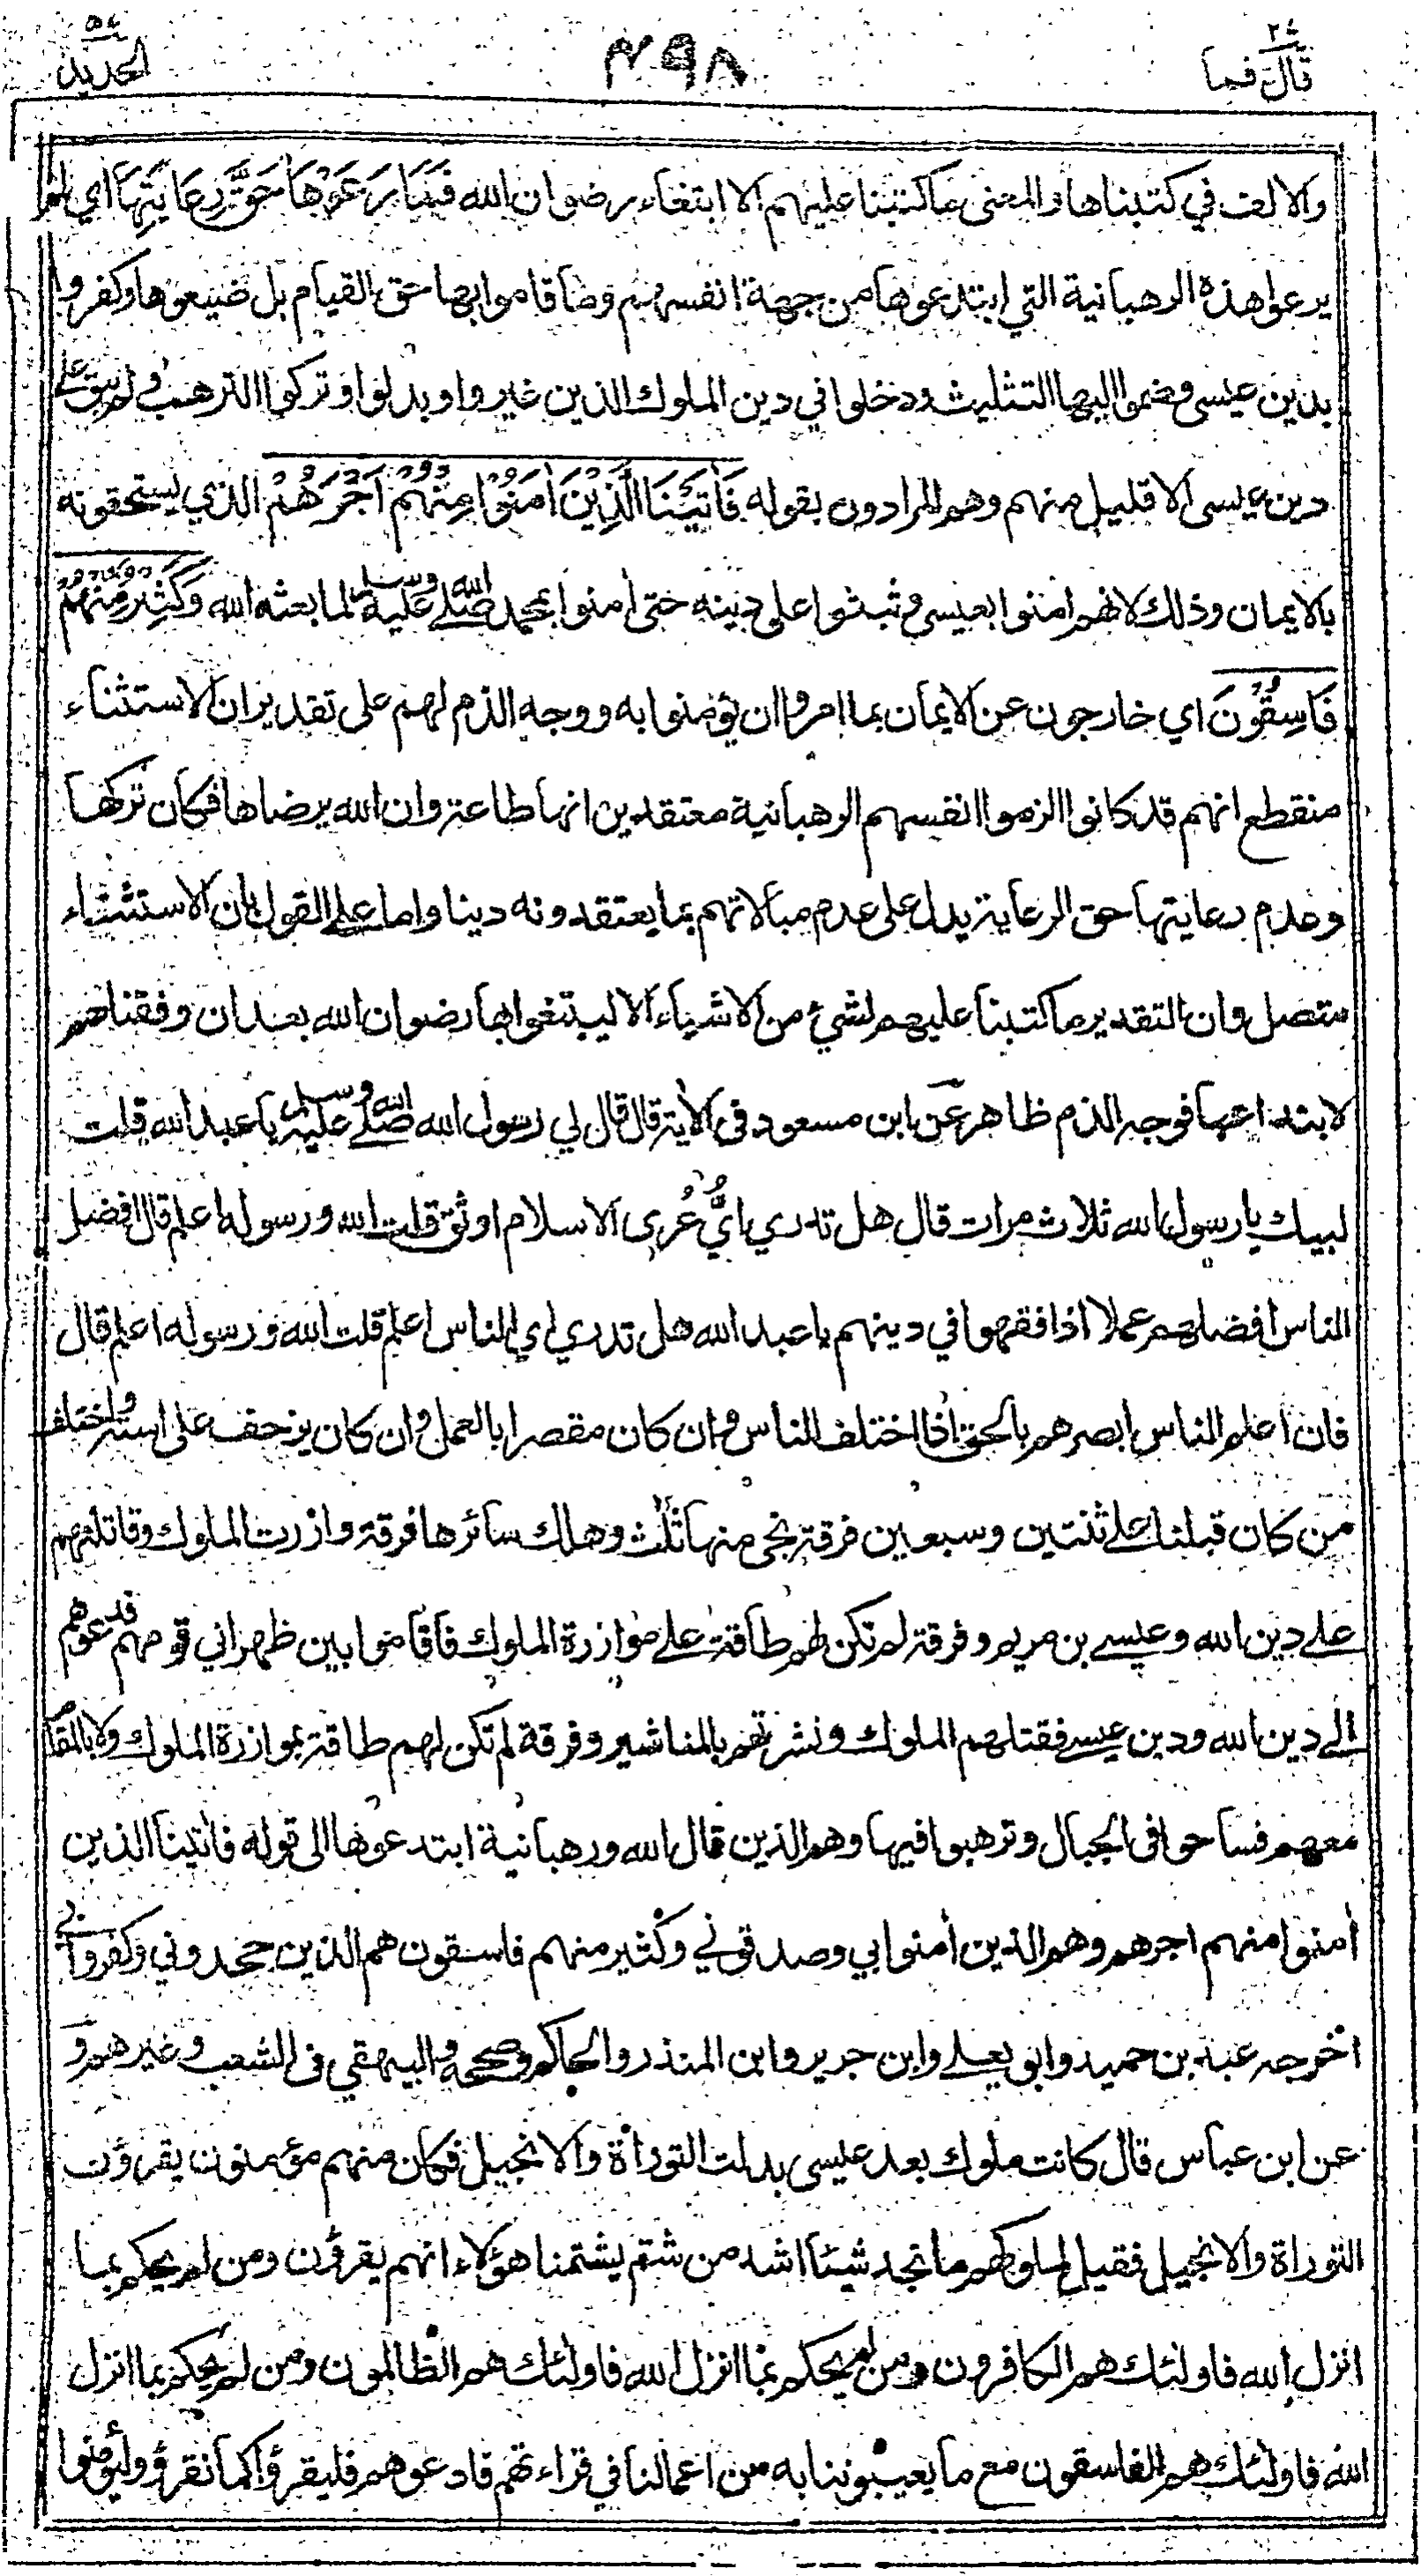 قال فما ٢٧
٤٩٨
الحديد ٥٧
والالف في كتبناها والمعنى ما كتبنا عليهم الا ابتغاء رضوان الله فَمَا رَعَوْهَا حَقَّ رِعَايَتِهَا أي لم
يرعوا هذه الرهبانية التي ابتدعوها من جهة انفسهم وما قاموا بها حق القيام بل ضيعوها وكفروا
بدين عيسى وضموا اليها التثليث ودخلوا في دين الملوك الذين غيروا وبدلوا وتركوا الترهب ولم يبق على
دين عيسى الا قليل منهم وهم المرادون بقوله فَآتَيْنَا الَّذِيْنَ آمَنُوْا مِنْهُمْ أَجْرَهُمْ الذي يستحقونه
بالايمان وذلك لانهم امنوا بعيسى وثبتوا على دينه حتى أمنوا بمحمد صلى الله عليه وسلم لما بعثه الله وَكَثِيرٌ مِّنْهُمْ
فَاسِقُوْنَ اي خارجون عن الايمان بما امروا ان يؤمنوا به ووجه الذم لهم على تقدير ان الاستثناء
منقطع انهم قد كانوا الزموا انفسهم الرهبانية معتقدين انها طاعة وان الله يرضاها فكان تركها
وعدم رعايتها حق الرعاية يدل على عدم مبالاتهم بما يعتقدونه دينا واما على القول بان الاستثناء
متصل وان التقدير ما كتبنا عليهم لشيء من الاشياء الا ليبتغوا بها رضوان الله بعد ان وفقناهم
لابتداعها فوجه الذم ظاهر عن ابن مسعود في الأية قال قال لي رسول الله صلى الله عليه وسلم يا عبد الله قلت
لبيك يا رسول الله ثلاث مرات قال هل تدري ايُّ عُرى الاسلام اوثق قلت الله ورسوله اعلم قال افضل
الناس افضلهم عملا اذا فقهوا في دينهم يا عبد الله هل تدري اي الناس اعلم قلت الله ورسوله اعلم قال
فان اعلم الناس ابصرهم بالحق اذا اختلف الناس وان كان مقصرا بالعمل وان كان يزحف على استه واختلف
من كان قبلنا على ثنتين وسبعين فرقة نجى منها ثلث وهلك سائرها فرقة وازرت الملوك وقاتلتهم
على دين الله وعيسى بن مريم وفرقة لم تكن لهم طاقة على موازرة الملوك فاقاموا بين ظهراني قومهم فدعوهم
الى دين الله ودين عيسى فقتلهم الملوك ونشرتهم بالمناشير وفرقة لم تكن لهم طاقة بموازرة الملوك ولا بالمقام
معهم فساحوا في الجبال وترهبوا فيها وهم الذين قال الله ورهبانية ابتدعوها الى قوله فأتينا الذين
أمنوا منهم اجرهم وهم الذين أمنوا بي وصدقوني وكثير منهم فاسقون هم الذين جحدوني وكفروا بي
اخرجه عبد بن حميد وابو يعلى وابن جرير وابن المنذر والحاكم وصححه والبيهقي في الشعب وغيرهم و
عن ابن عباس قال كانت ملوك بعد عيسى بدلت التوراة والانجيل فكان منهم مؤمنون يقرؤن
التوراة والانجيل فقيل لملوكهم ما نجد شيئا اشد من شتم يشتمنا هؤلاء انهم يقرؤن ومن لم يحكم بما
انزل الله فاولئك هم الكافرون ومن لم يحكم بما انزل الله فاولئك هم الظالمون ومن لم يحكم بما انزل
الله فاولئك هم الفاسقون مع ما يعيبوننا به من اعمالنا في قراءتهم فادعوهم فليقرؤا كما نقرؤ وليؤمنوا